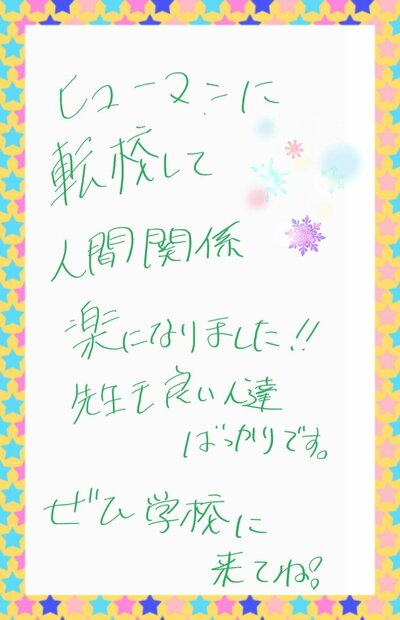 ヒューマンに
転校して
人間関係
楽になりました!!
先生も良い人達
ばっかりです。
ぜひ学校に
来てね!